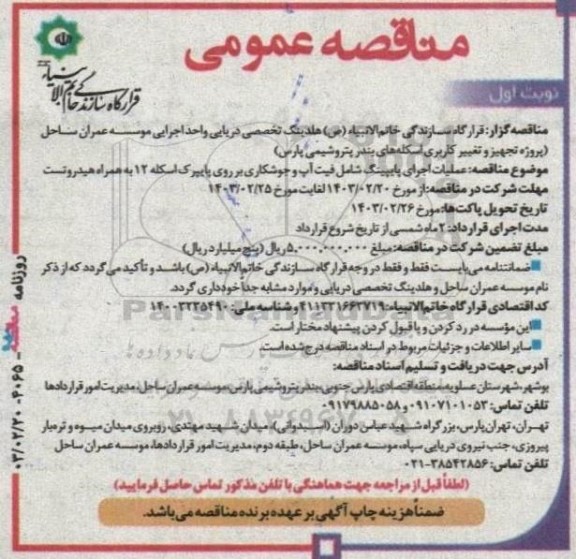 مناقصه عمومی
قرارگاه سازندگی خاتم الانبیاء
نوبت اول
مناقصه گزار: قرارگاه سازندگی خاتم‌الانبیاء (ص) هلدینگ تخصصی دریایی واحد اجرایی موسسه عمران ساحل
(پروژه تجهیز و تغییر کاربری اسکله‌های بندر پتروشیمی پارس)
موضوع مناقصه: عملیات اجرای پایپینگ شامل فیت آپ و جوشکاری بر روی پایپرک اسکله ۱۲ به همراه هیدروتست
مهلت شرکت در مناقصه: از مورخ ۱۴۰۳/۰۲/۲۰ لغایت مورخ ۱۴۰۳/۰۲/۲۵
تاریخ تحویل پاکت‌ها: مورخ ۱۴۰۳/۰۲/۲۶
مدت اجرای قرارداد: ۲ ماه شمسی از تاریخ شروع قرارداد
مبلغ تضمین شرکت در مناقصه: مبلغ ۵,۰۰۰,۰۰۰,۰۰۰ ریال (پنج میلیارد ریال)
ضمانتنامه می‌بایست فقط و فقط در وجه قرارگاه سازندگی خاتم‌الانبیاء (ص) باشد و تأکید می‌گردد که از ذکر
نام موسسه عمران ساحل و هلدینگ تخصصی دریایی و موارد مشابه جداً خودداری گردد.
کد اقتصادی قرارگاه خاتم‌الانبیاء: ۴۱۱۳۳۱۶۶۲۷۱۹ و شناسه ملی: ۱۴۰۰۳۲۲۵۴۹۰
این مؤسسه در رد کردن و یا قبول کردن پیشنهاد مختار است.
سایر اطلاعات و جزئیات مربوط در اسناد مناقصه درج شده است.
آدرس جهت دریافت و تسلیم اسناد مناقصه:
بوشهر، شهرستان عسلویه، منطقه اقتصادی پارس جنوبی، بندر پتروشیمی پارس، موسسه عمران ساحل، مدیریت امور قراردادها
تلفن تماس: ۰۹۱۰۷۱۰۱۰۵۳ و ۰۹۱۷۹۸۸۵۰۵۸
تهران، تهران‌پارس، بزرگراه شهید عباس دوران (استخر)، میدان شهید مهتدی، روبروی میدان میوه و تره‌بار
پیروزی، جنب نیروی دریایی سپاه، موسسه عمران ساحل، طبقه دوم، مدیریت امور قراردادها، موسسه عمران ساحل
تلفن تماس: ۰۲۱-۳۸۵۴۲۸۵۶
(لطفاً قبل از مراجعه جهت هماهنگی با تلفن مذکور تماس حاصل فرمایید)
ضمناً هزینه چاپ آگهی بر عهده برنده مناقصه می‌باشد.
روزنامه مناقصه - ۴۰۶۵ - ۰۳/۰۲/۲۰
ParsNamadData